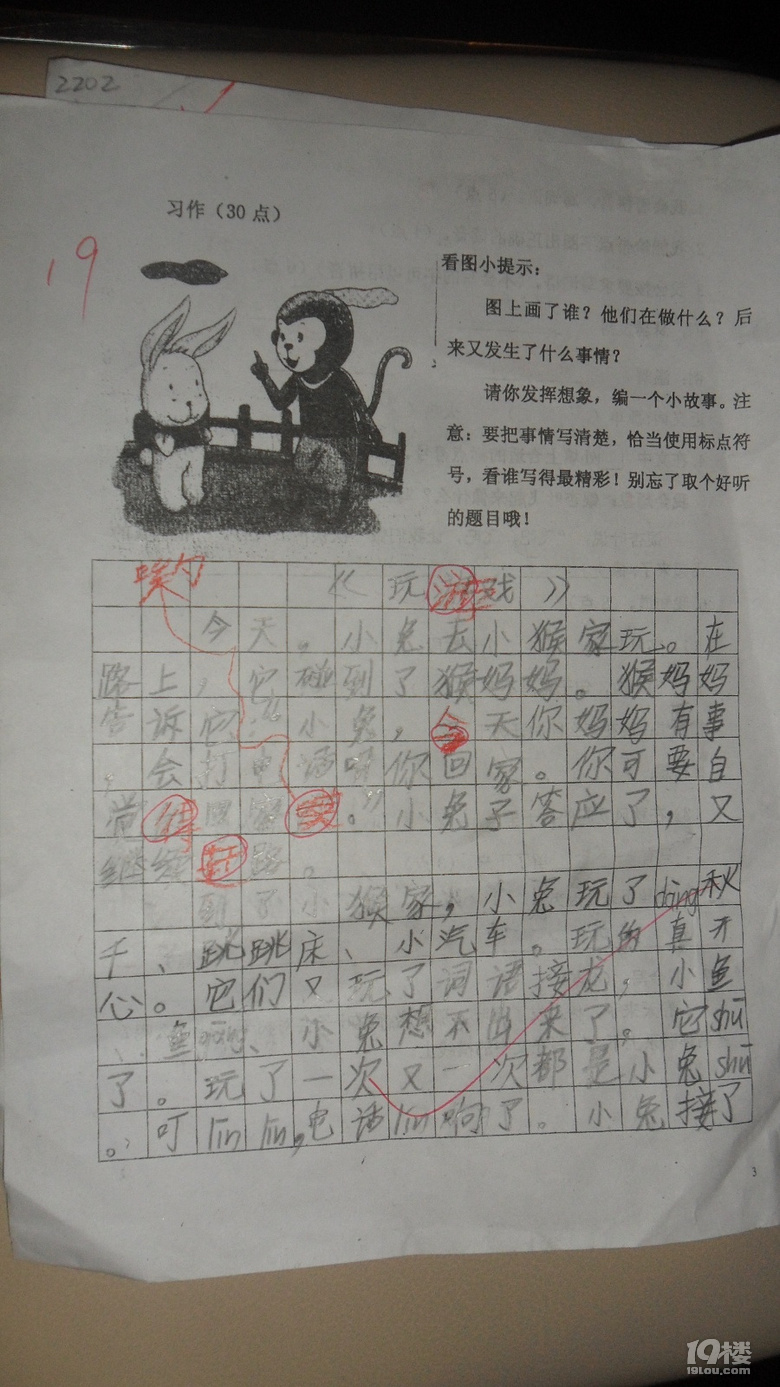 2202
习作（30 点）
19
看图小提示：
图上画了谁？他们在做什么？后
来又发生了什么事情？
请你发挥想象，编一个小故事。注
意：要把事情写清楚，恰当使用标点符
号，看谁写得最精彩！别忘了取个好听
的题目哦！
《玩游戏》
今天。小兔去小猴家玩。在
路上，它碰到了猴妈妈。猴妈妈
告诉它：“小兔，今天你妈妈有事
，会打电话叫你回家。你可要自
。”小兔子答应了，又
继续 路。
到了小猴家，小兔玩了dàng秋
千、跳跳床、小汽车。玩的真开
心。它们又玩了词语接龙，小鱼
、鱼 、小兔想不出来了。它shū
了。玩了一次又一次都是小兔shū
。叮lín lín，电话lín响了。小兔接了
3
19楼
19lou.com